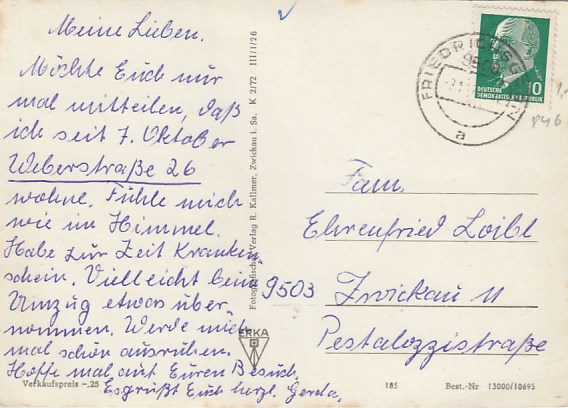 Meine Lieben.
Möchte Euch nur
mal mitteilen, daß
ich seit 7. Oktober
Weberstraße 26
wohne. Fühle mich
wie im Himmel.
Habe zur Zeit Kranken
schein. Vielleicht beim
Umzug etwas über
nommen. Werde mich
mal schön ausruhen.
Hoffe mal auf Euren Besuch.
Es grüßt Euch herzl. Gerda.
Verkaufspreis -,25
Fotografischer Verlag R. Kallmer, Zwickau i. Sa. K 2/72 III/1/26
ERKA
DEUTSCHE
DEMOKRATISCHE REPUBLIK
10
a
P46
Fam.
Ehrenfried Loibl
9503 Zwickau 11
Pestalozzistraße
185 Best.-Nr 13000/10695